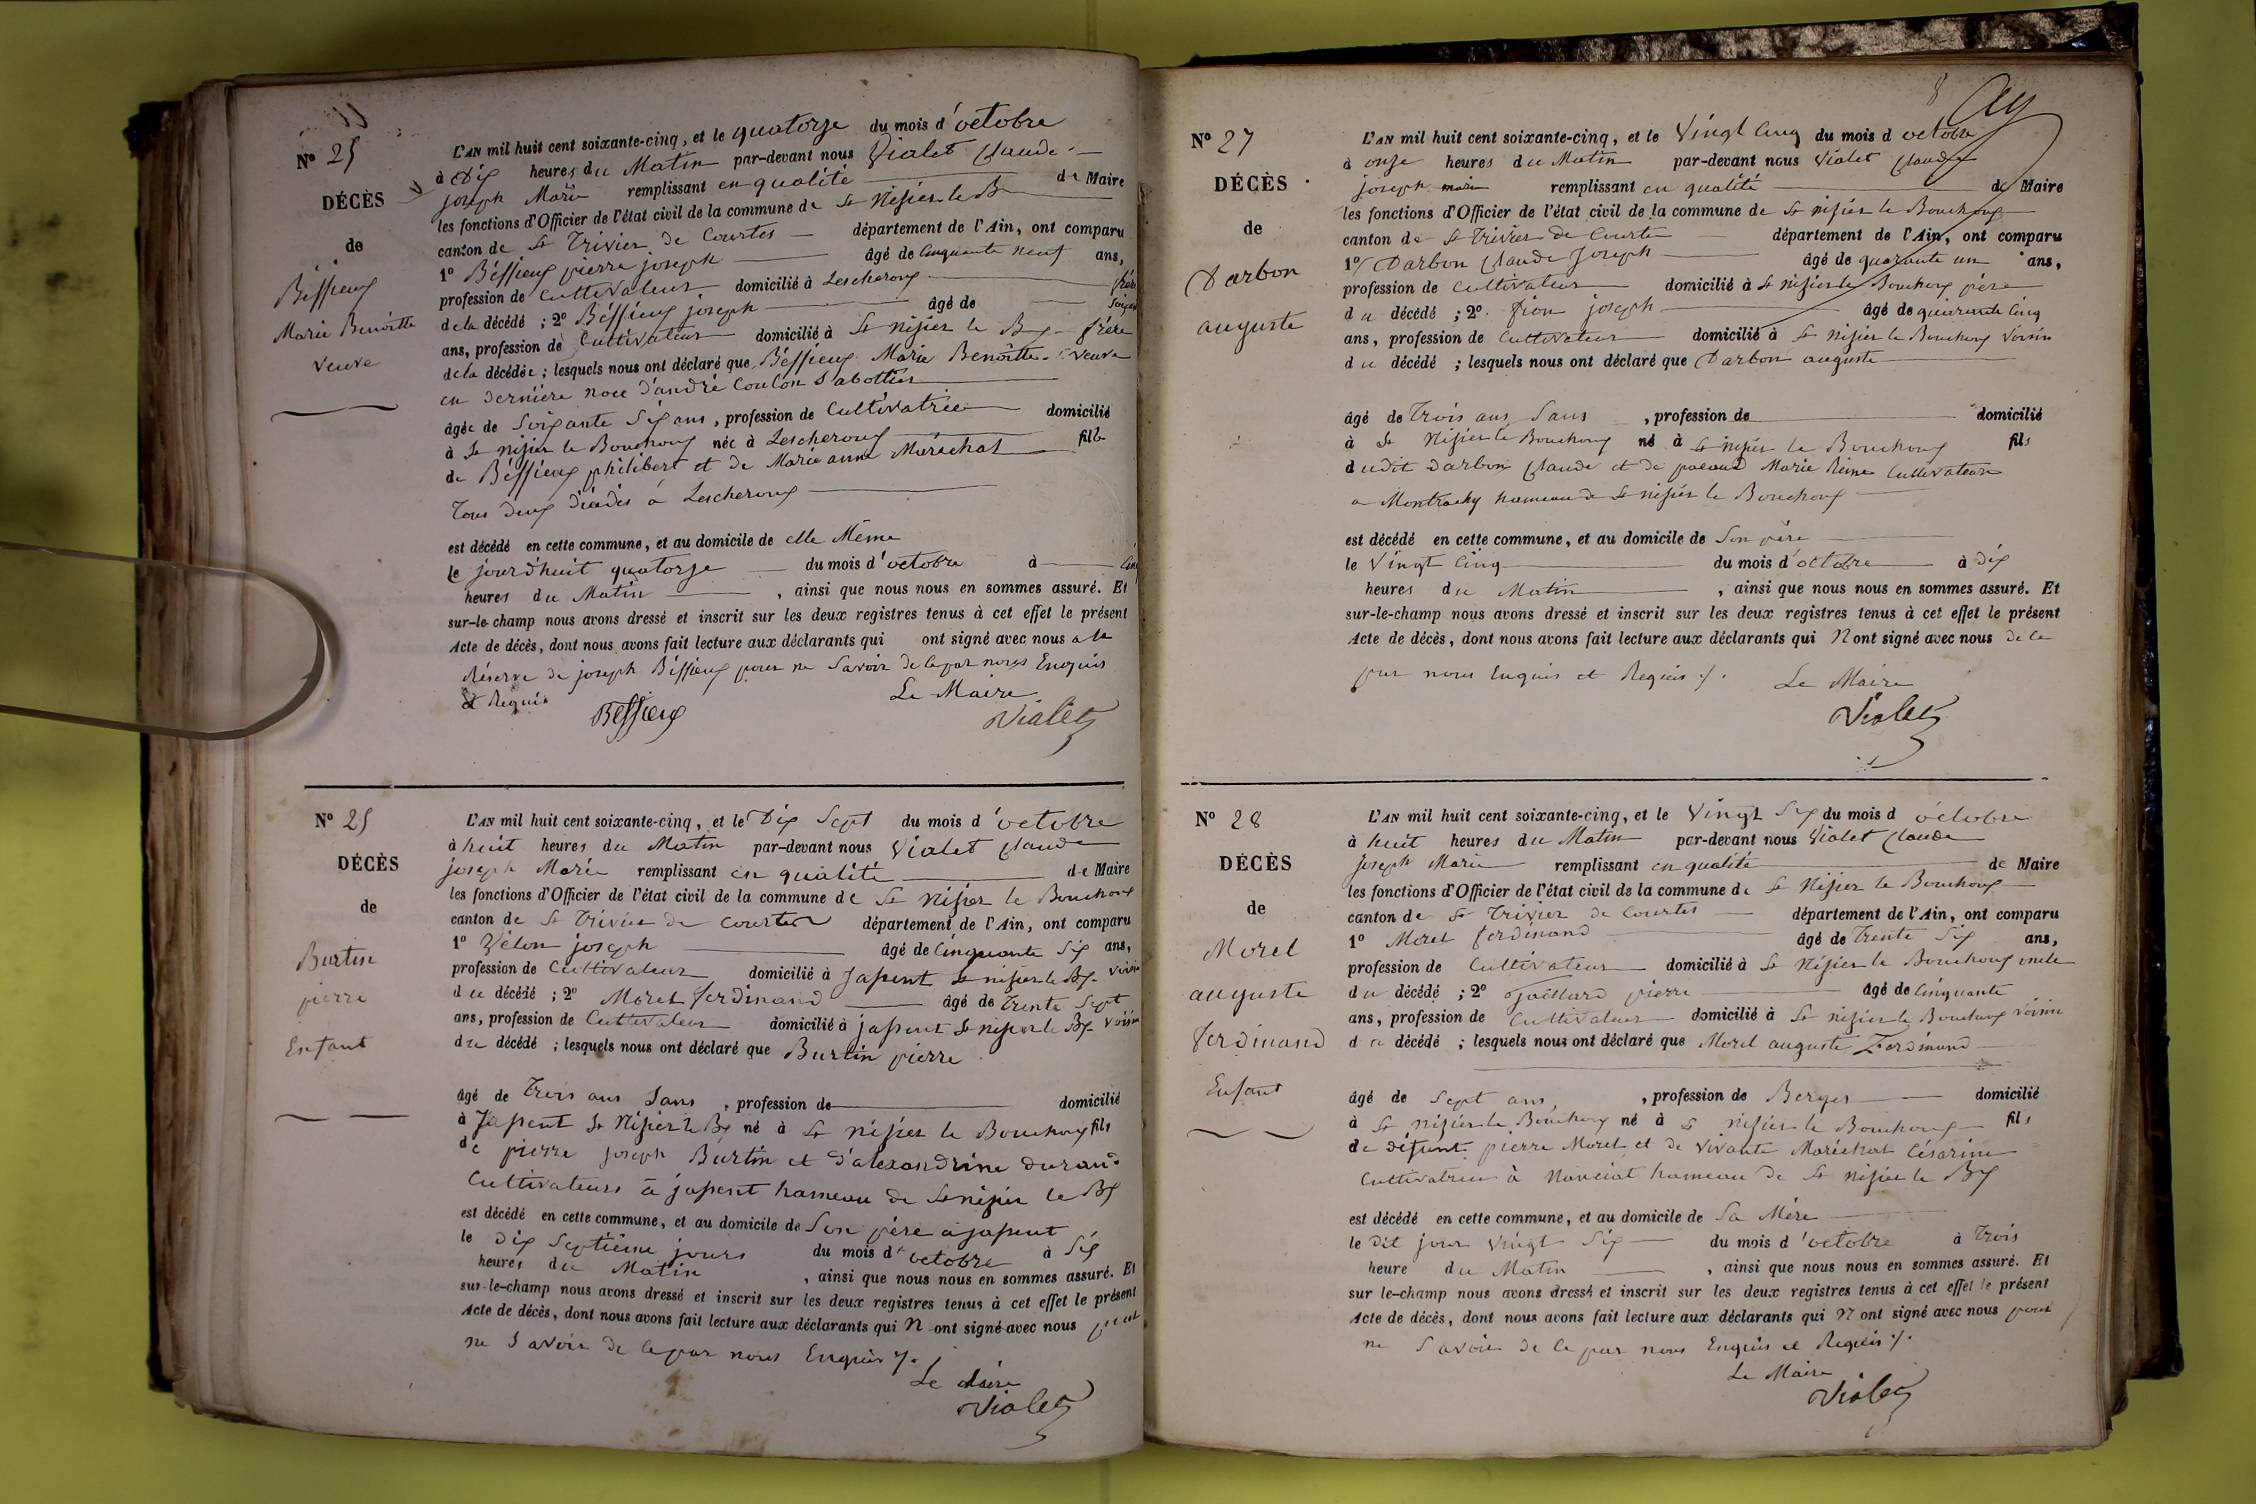 N° 25
DÉCÈS
de
Béssieux
Marie Benoîtte
veuve
L'AN mil huit cent soixante-cinq, et le quatorze du mois d'octobre
à Dix heures du Matin par-devant nous Vialet Claude
joseph Marie remplissant en qualité de Maire
les fonctions d'Officier de l'état civil de la commune de St Nizier le B
canton de St Trivier de Courtes département de l'Ain, ont comparu
1° Béssieux pierre joseph âgé de Cinquante neuf ans,
profession de Cultivateur domicilié à Lescheroux frère
de la décédé ; 2° Béssieux joseph âgé de soixan
ans, profession de Cultivateur domicilié à St nizier le Bx frère
de la décédée ; lesquels nous ont déclaré que Béssieux Marie Benoîtte veuve
en dernière noce d'andré Coulon Sabottier
âgée de Soixante Six ans, profession de Cultivatrice domicilié
à St nizier le Bouchoux née à Lescheroux fille
de Béssieux philibert et de Marie anne Maréchal
Tous deux décédés à Lescheroux
est décédé en cette commune, et au domicile de elle Même
le jourd'huit quatorze du mois d'octobre à Cinq
heures du Matin , ainsi que nous nous en sommes assuré. Et
sur-le-champ nous avons dressé et inscrit sur les deux registres tenus à cet effet le présent
Acte de décès, dont nous avons fait lecture aux déclarants qui ont signé avec nous a la
Réserve de joseph Béssieux pour ne Savoir de ce par nous Enquis
et Requis
Le Maire
Béssieux
Vialet
N° 25
DÉCÈS
de
Burtin
pierre
Enfant
L'AN mil huit cent soixante-cinq, et le Dix Sept du mois d'octobre
à huit heures du Matin par-devant nous Vialet Claude
joseph Marie remplissant en qualité de Maire
les fonctions d'Officier de l'état civil de la commune de St Nizier le Bouchoux
canton de St Trivier de Courtes département de l'Ain, ont comparu
1° Vélon joseph âgé de Cinquante Six ans,
profession de Cultivateur domicilié à Japent St nizier le Bx voisin
du décédé ; 2° Morel ferdinand âgé de Trente Sept
ans, profession de Cultivateur domicilié à japent St nizier le Bx voisin
du décédé ; lesquels nous ont déclaré que Burtin pierre
âgé de Trois ans Sans , profession de domicilié
à Japent St Nizier le Bx né à St nizier le Bouchoux fils
de pierre joseph Burtin et d'alexandrine durand
Cultivateurs à japent hameau de St nizier le Bx
est décédé en cette commune, et au domicile de Son père à japent
le Dix Septième jours du mois d'octobre à Six
heures du Matin , ainsi que nous nous en sommes assuré. Et
sur-le-champ nous avons dressé et inscrit sur les deux registres tenus à cet effet le présent
Acte de décès, dont nous avons fait lecture aux déclarants qui N ont signé avec nous pour
ne Savoir de ce par nous Enquis ./.
Le Maire
Vialet
N° 27
DÉCÈS
de
Darbon
auguste
L'AN mil huit cent soixante-cinq, et le Vingt Cinq du mois d octobre
à onze heures du Matin par-devant nous Vialet Claude
joseph marie remplissant en qualité de Maire
les fonctions d'Officier de l'état civil de la commune de St nizier le Bouchoux
canton de St Trivier de Courte département de l'Ain, ont comparu
1° Darbon Claude Joseph âgé de quarante un ans,
profession de Cultivateur domicilié à St nizier le Bouchoux père
du décédé ; 2° Pion joseph âgé de quarante Cinq
ans, profession de Cultivateur domicilié à St Nizier le Bouchoux Voisin
du décédé ; lesquels nous ont déclaré que Darbon auguste
âgé de Trois ans Sans , profession de domicilié
à St Nizier le Bouchoux né à St nizier le Bouchoux fils
dudit Darbon Claude et de Marie Reine Cultivateurs
a hameau de St nizier le Bouchoux
est décédé en cette commune, et au domicile de Son père
le Vingt Cinq du mois d'octobre à dix
heures du Matin , ainsi que nous nous en sommes assuré. Et
sur-le-champ nous avons dressé et inscrit sur les deux registres tenus à cet effet le présent
Acte de décès, dont nous avons fait lecture aux déclarants qui N ont signé avec nous de ce
par nous Enquis et Requis ./.
Le Maire
Vialet
N° 28
DÉCÈS
de
Morel
auguste
ferdinand
Enfant
L'AN mil huit cent soixante-cinq, et le Vingt Six du mois d octobre
à huit heures du Matin par-devant nous Vialet Claude
Joseph Marie remplissant en qualité de Maire
les fonctions d'Officier de l'état civil de la commune de St Nizier le Bouchoux
canton de St Trivier de Courtes département de l'Ain, ont comparu
1° Morel ferdinand âgé de Trente Six ans,
profession de Cultivateur domicilié à St Nizier le Bouchoux oncle
du décédé ; 2° Gaillard pierre âgé de Cinquante
ans, profession de Cultivateur domicilié à St nizier le Bouchoux voisin
du décédé ; lesquels nous ont déclaré que Morel auguste Ferdinand
âgé de Sept ans , profession de Berger domicilié
à St nizier le Bouchoux né à St nizier le Bouchoux fils
de défunt pierre Morel et de vivante Maréchal Césarine
Cultivatrice à hameau de St nizier le Bx
est décédé en cette commune, et au domicile de Sa Mère
le dit jour vingt Six du mois d'octobre à Trois
heure du Matin , ainsi que nous nous en sommes assuré. Et
sur le-champ nous avons dressé et inscrit sur les deux registres tenus à cet effet le présent
Acte de décès, dont nous avons fait lecture aux déclarants qui N ont signé avec nous pour
ne Savoir de ce par nous Enquis et Requis ./.
Le Maire
Vialet